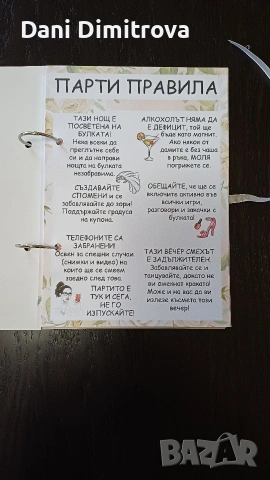 Dani Dimitrova
ПАРТИ ПРАВИЛА
ТАЗИ НОЩ Е
ПОСВЕТЕНА НА
БУЛКАТА!
Нека всеки да
преглътне себе
си и да направи
нощта на булката
незабравима.
АЛКОХОЛЪТ НЯМА ДА
Е ДЕФИЦИТ, той ще
бъде като магнит.
Ако някоя от
дамите е без чаша
в ръка, МОЛЯ
погрижете се.
СЪЗДАВАЙТЕ
СПОМЕНИ и се
забавлявайте до зори!
Поддържайте градуса
на купона.
ОБЕЩАЙТЕ, че ще се
включите активно във
всички игри,
разговори и закачки с
булката!
ТЕЛЕФОНИТЕ СА
ЗАБРАНЕНИ!
Освен за спешни случаи
(снимки и видео) на
които ще се смеем
заедно след това.
ТАЗИ ВЕЧЕР СМЕХЪТ
Е ЗАДЪЛЖИТЕЛЕН.
Забавлявайте се и
танцувайте, докато не
ви омекнат краката!
Може и на вас да ви
излезе късмета тази
вечер!
ПАРТИТО Е
ТУК И СЕГА,
НЕ ГО
ИЗПУСКАЙТЕ!
BAZAR
bg